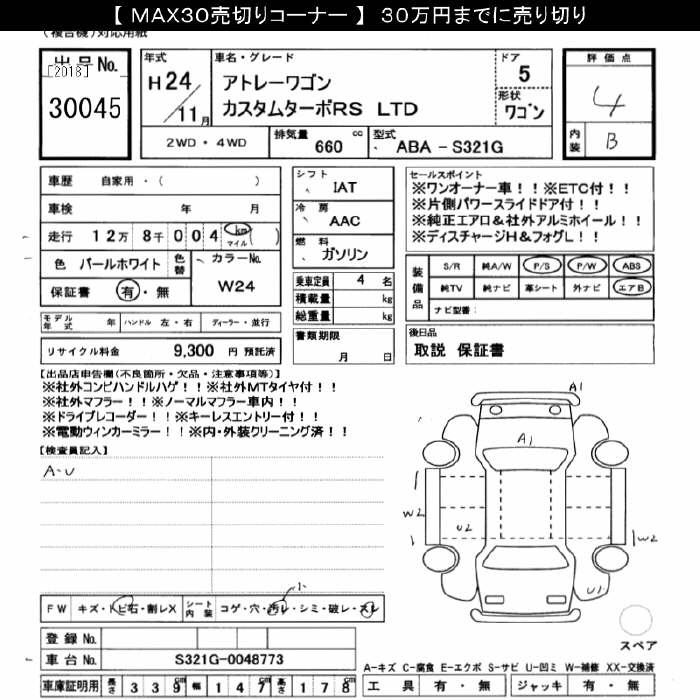 【 MAX30売切りコーナー 】 30万円までに売り切り
(複合機)対応用紙
出 品 No.
[2018]
30045
年式
H24/11月
車名・グレード
アトレーワゴン
カスタムターボRS LTD
ドア
5
形状
ワゴン
評 価 点
4
内装
B
2WD・4WD
排気量 660 cc
型式 ABA - S321G
車歴 自家用・( )
車検 年 月
走行 12万 8千 0 0 4 km マイル ( )
色 パールホワイト 色替
カラーNo.
W24
保証書 有・無
シフト
IAT
冷 房
AAC
燃 料
ガソリン
乗車定員 4 名
積載量 kg
総重量 kg
書類期限
月 日
モデル年式 年 ハンドル 左・右 ディーラー・並行
リサイクル料金 9,300 円 預託済
セールスポイント
※ワンオーナー車！！※ETC付！！
※片側パワースライドドア付！！
※純正エアロ&社外アルミホイール！！
※ディスチャージH&フォグL！！
装備品
S/R 純A/W P/S P/W ABS
純TV 純ナビ 革シート 外ナビ エアB
ナビ型番:
後日品
取説 保証書
【出品店申告欄(不良箇所・欠品・注意事項等)】
※社外コンビハンドルハゲ！！※社外MTタイヤ付！！
※社外マフラー！！※ノーマルマフラー車内！！
※ドライブレコーダー！！※キーレスエントリー付！！
※電動ウィンカーミラー！！※内・外装クリーニング済！！
【検査員記入】
A-U
A1
A1
W2
U2
W2
U1
小
FW キズ・トビ石・割レX シート内装 コゲ・穴・汚レ・シミ・破レ・スレ
登録 No.
車台 No. S321G-0048773
車庫証明用 長さ 3 3 9 cm 幅 1 4 7 cm 高さ 1 7 8 cm
スペア
A-キズ C-腐食 E-エクボ S-サビ U-凹ミ W-補修 XX-交換済
工 具 有・無 ジャッキ 有・無